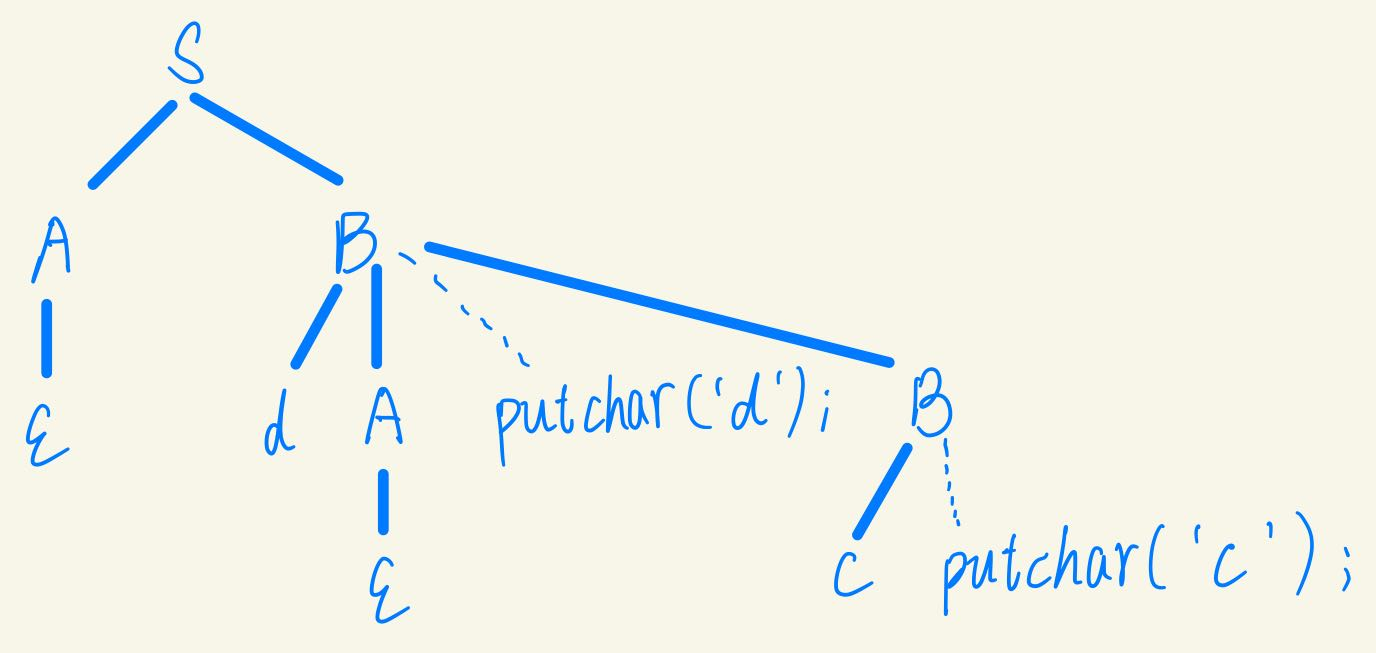 S
A B
ε d A putchar('d'); B
ε c putchar('c');